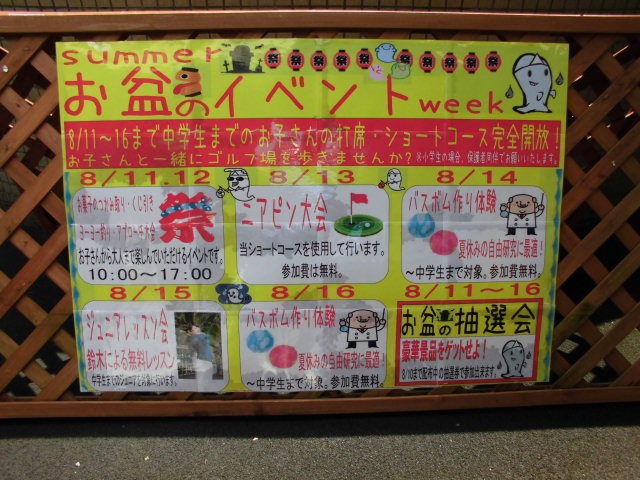 summer
祭 祭 祭 祭 祭 祭 祭 祭
お盆のイベントweek
8/11～16まで中学生までのお子さんの打席・ショートコース完全開放！
お子さんと一緒にゴルフ場を歩きませんか？※小学生の場合、保護者同伴でお願いいたします。
8/11.12
お菓子のつかみ取り・くじ引き
ヨーヨー釣り・アプローチ大会
祭
お子さんから大人まで楽しんでいただけるイベントです。
10:00～17:00
8/13
ニアピン大会
当ショートコースを使用して行います。
参加費は無料。
8/14
バスボム作り体験
夏休みの自由研究に最適！
～中学生まで対象。参加費無料。
8/15
ジュニアレッスン会
鈴木による無料レッスン
中学生までのジュニアを対象に行います。
8/16
バスボム作り体験
夏休みの自由研究に最適！
～中学生まで対象。参加費無料。
8/11～16
お盆の抽選会
豪華景品をゲットせよ！
8/10まで配布中の抽選券で参加出来ます。